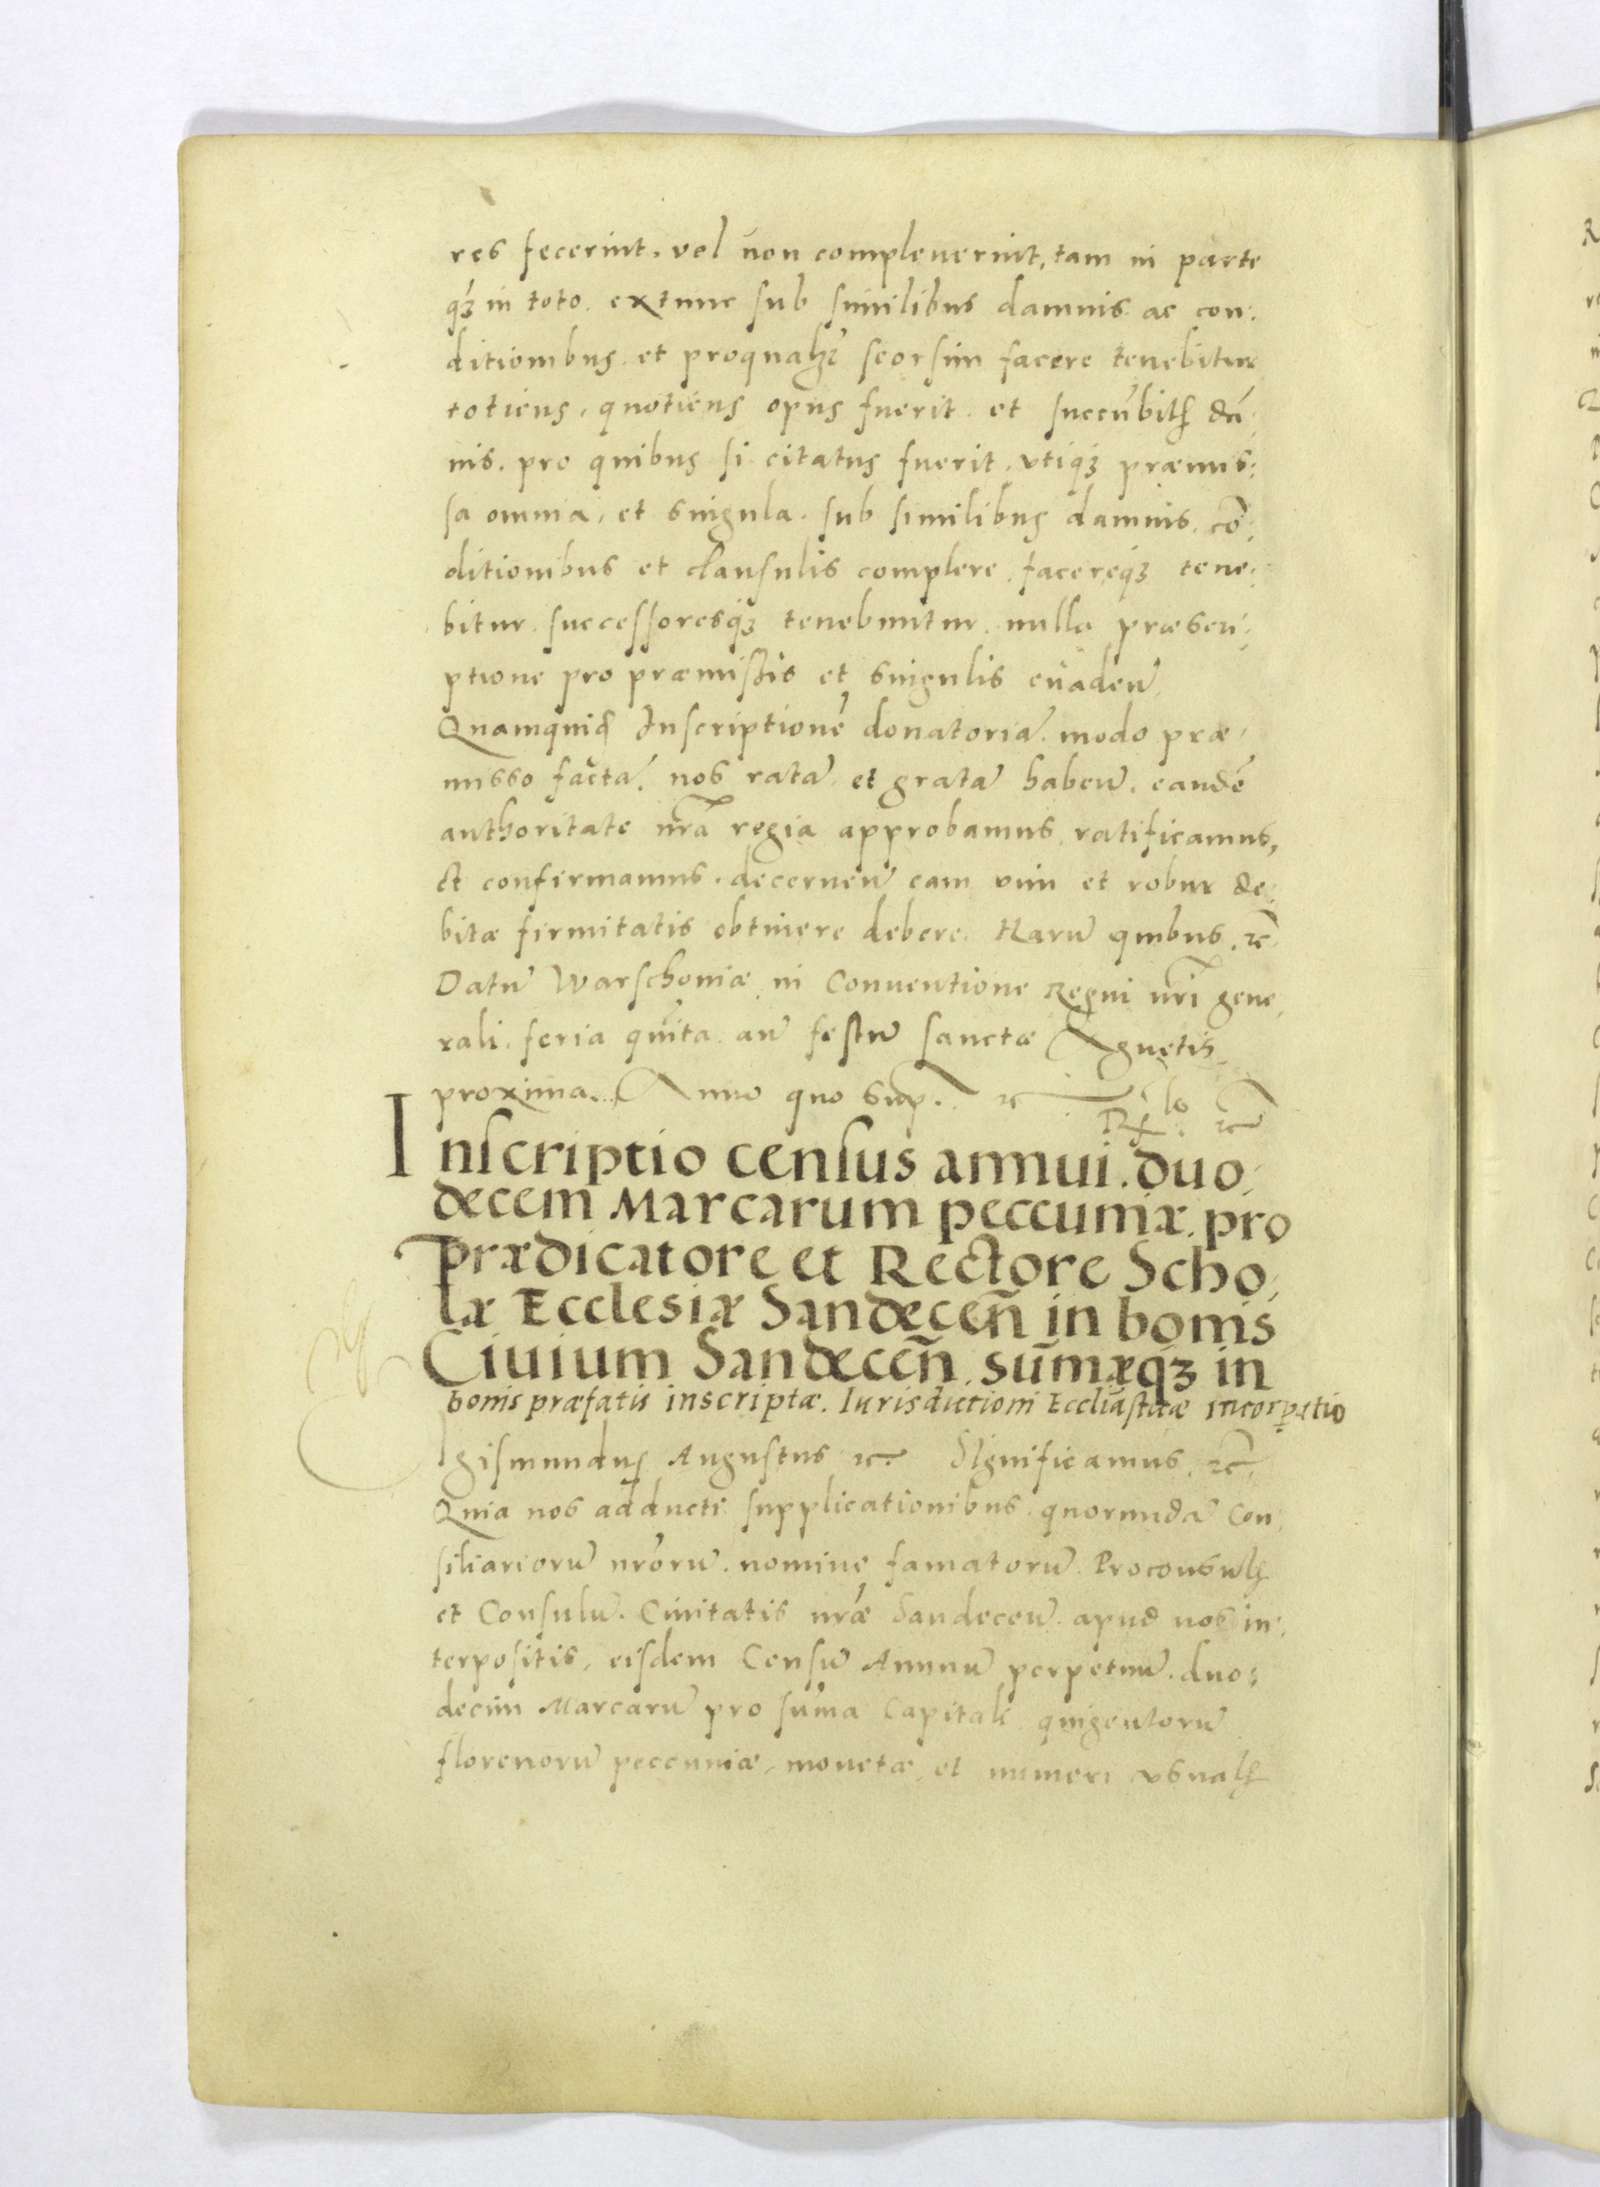 res fecerint. vel non compleuerint, tam in parte
qȝ in toto. extunc sub similibus damnis ac con:
ditionibus. et proqualȝ seorsim facere tenebitur
totiens, quotiens opus fuerit. et succūbitꝭ dā,
nis. pro quibus si citatus fuerit. vtiqȝ præmis:
sa omnia, et singula. sub similibus damnis, cō:
ditionibus et clausulis complere, facereqȝ tene:
bitur. successoresqȝ tenebuntur. nulla præscri:
ptione pro præmissis et singulis euadeñ
Quamquidꝭ Inscriptionē donatoriā. modo præ,
misso factā. nos ratā et gratā habeñ. eandē
authoritate nrā regia approbamus ratificamus,
et confirmamus. decerneñ eam vim et robur de:
bitæ firmitatis obtinere debere. Harū quibus. ꝛc̄
Datū Warschouiæ in Conuentione Regni nrī gene,
rali. feria quīta. añ festū sanctæ Agnetis
proxima. Anno quo sup. ꝛc
Inscriptio census annui. duo,
decem Marcarum peccuniæ. pro
prædicatore et Rectore Scho,
læ Ecclesiæ Sandeceñ in bonis
Ciuium Sandeceñ. sūmæqȝ in
bonis præfatis inscriptæ. Iurisdictioni Eccliāsticæ incorꝑatio
gismundus Augustus ꝛc. Significamus, ꝛc̄.
Quia nos adducti supplicationibus quorundā Con,
siliariorū nrorū. nomine famatorū. Proconsulꝭ
et Consulū. Ciuitatis nræ Sandeceñ. apud nos in,
terpositis, eisdem Censū Annuū perpetuū. duo:
decim Marcarū pro sūma Capitali quigentorū
florenorū peccuniæ, monetæ, et numeri vsualꝭ